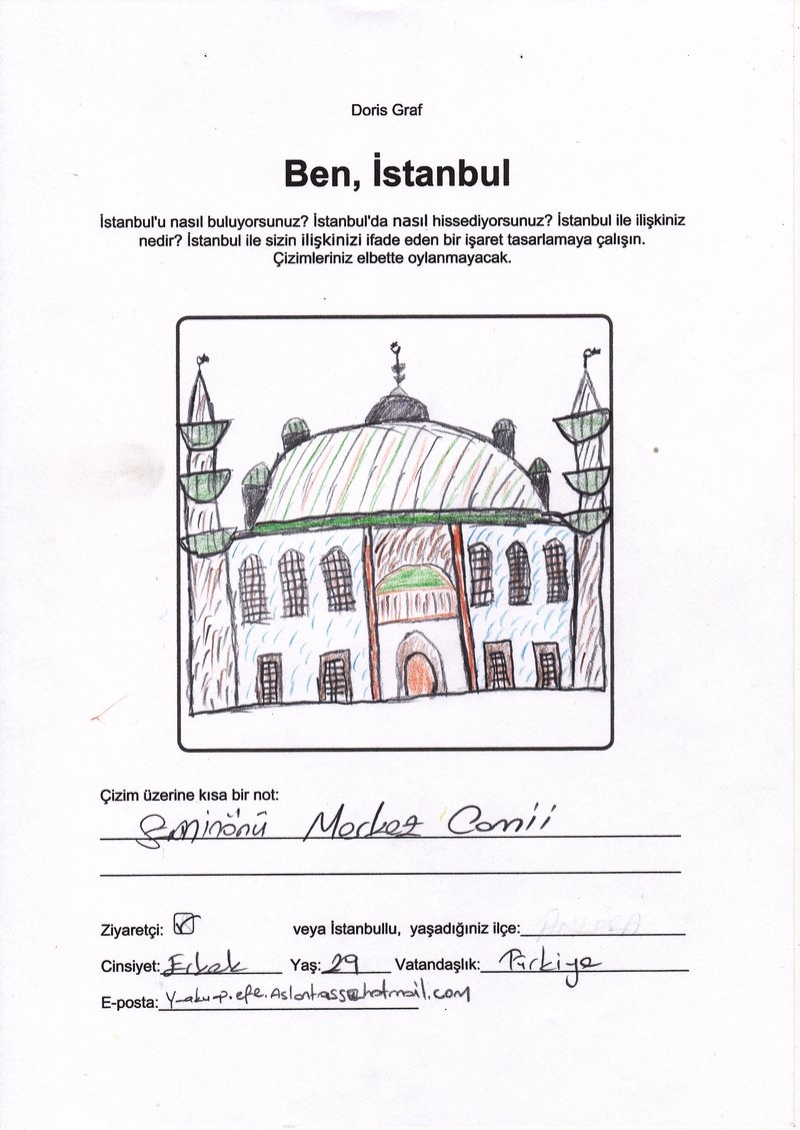 Doris Graf
Ben, İstanbul
İstanbul'u nasıl buluyorsunuz? İstanbul'da nasıl hissediyorsunuz? İstanbul ile ilişkiniz
nedir? İstanbul ile sizin ilişkinizi ifade eden bir işaret tasarlamaya çalışın.
Çizimleriniz elbette oylanmayacak.
Çizim üzerine kısa bir not:
Eminönü Merkez Camii
Ziyaretçi: veya İstanbullu, yaşadığınız ilçe: ANKARA
Cinsiyet: Erkek Yaş: 29 Vatandaşlık: Türkiye
E-posta: